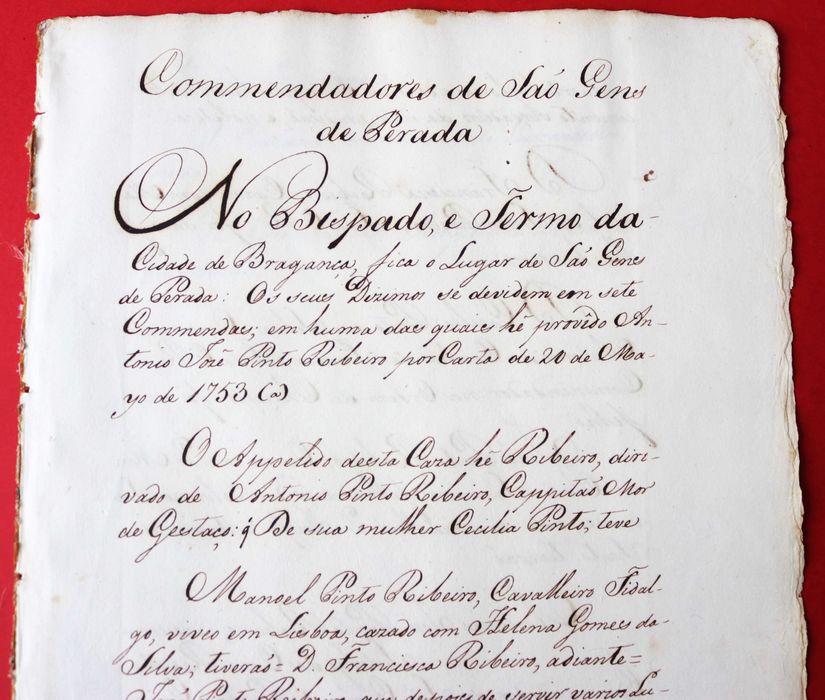 Commendadores de Saó Gens
de Perada
No Bispado, e Termo da-
Cidade de Bragança, fica o Lugar de Saó Gens
de Perada: Os seus Dizimos se devidem em sete
Commendas; em huma das quais hé provîdo An-
tonio Jozé Pinto Ribeiro por Carta de 20 de Ma-
yo de 1753 (a)
O Appelido desta Caza hé Ribeiro, diri-
vado de Antonio Pinto Ribeiro, Cappitaó Mor
de Gestaço: q̃ De sua mulher Cecilia Pinto; teve
Manoel Pinto Ribeiro, Cavalleiro Fidal-
go, viveo em Lisboa, cazado com Helena Gomes da-
Silva; tiveraó= D. Francisca Ribeiro, adiante=
Ribeiro, que depois de servir varios Lu-